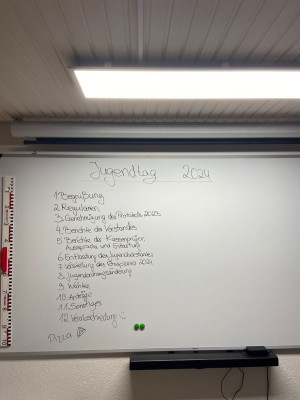 Jugendtag 2024
1. Begrüßung
2. Regularien
3. Genehmigung des Protokolls 2023
4. Berichte des Vorstandes
5. Berichte der Kassenprüfer,
Aussprache und Entlastung
6. Entlastung des Jugendvorstandes
7. Vorstellung des 2024
8. Jugendordnungsänderung
9. Wahlen
10. Anträge
11. Sonstiges
12. Verabschiedung :)
Pizza